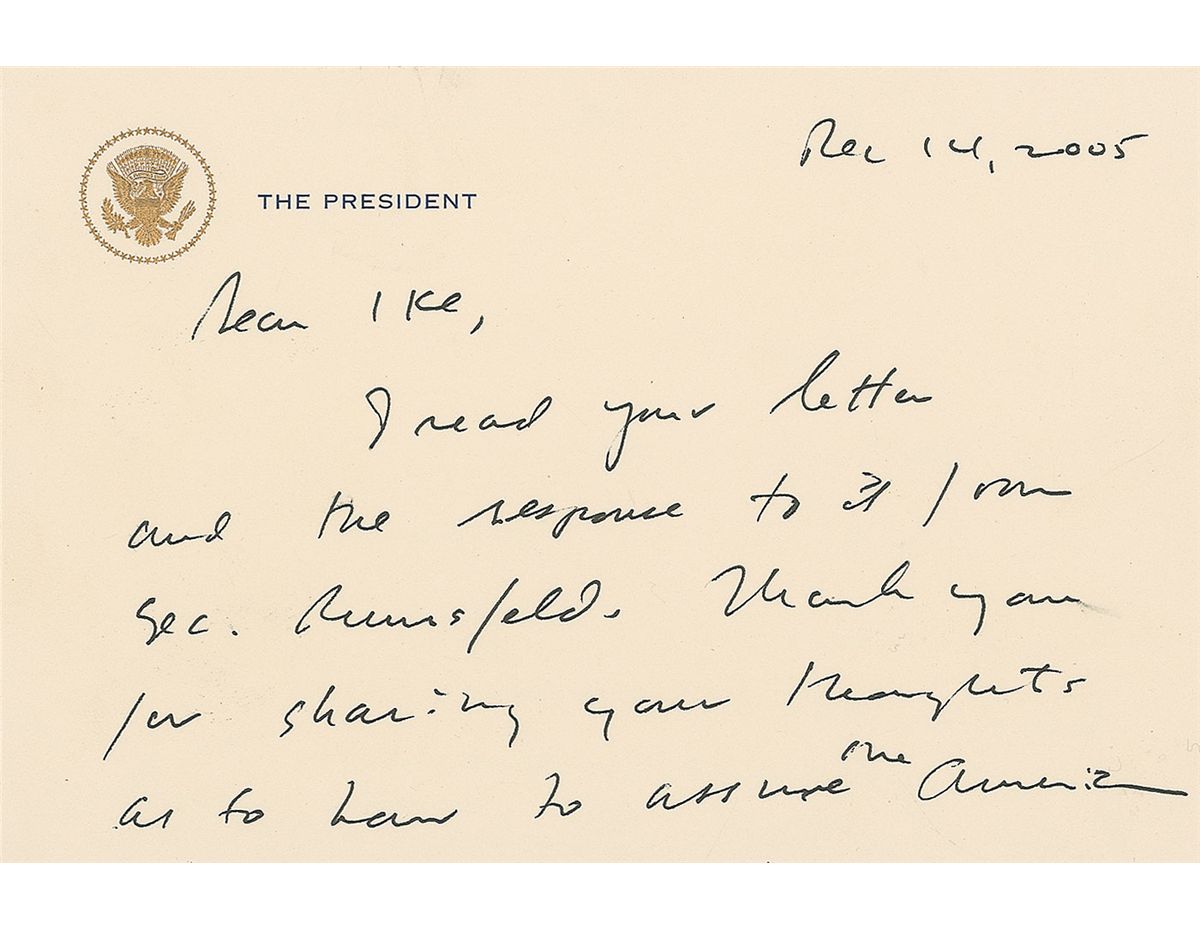 Dec 14, 2005
THE PRESIDENT
Dear Ike,
I read your letter
and the response to it from
Sec. Rumsfeld. Thank you
for sharing your thoughts
as to how to assure the American